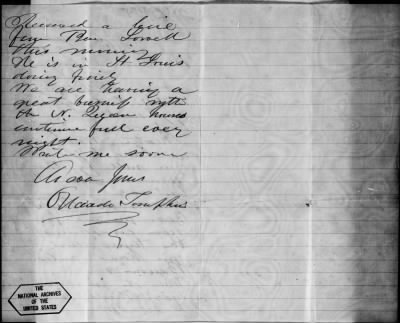 Received a line
from Thou Lowell
this morning
He is in St Louis
doing finely
We are having a
great business with
the N. Queen house
continue full every
night.
Write me soon
As ever Yours
THE
NATIONAL ARCHIVES
OF THE
UNITED STATES